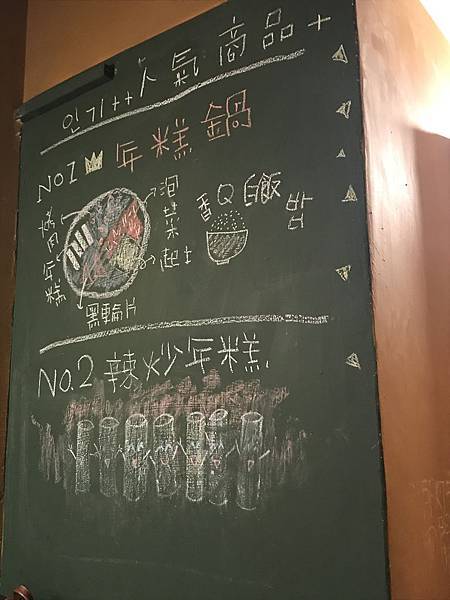 인기++人氣商品+
NO1 年糕鍋
泡菜
起士
黑輪片
年糕
香Q白飯
밥
NO.2 辣炒年糕